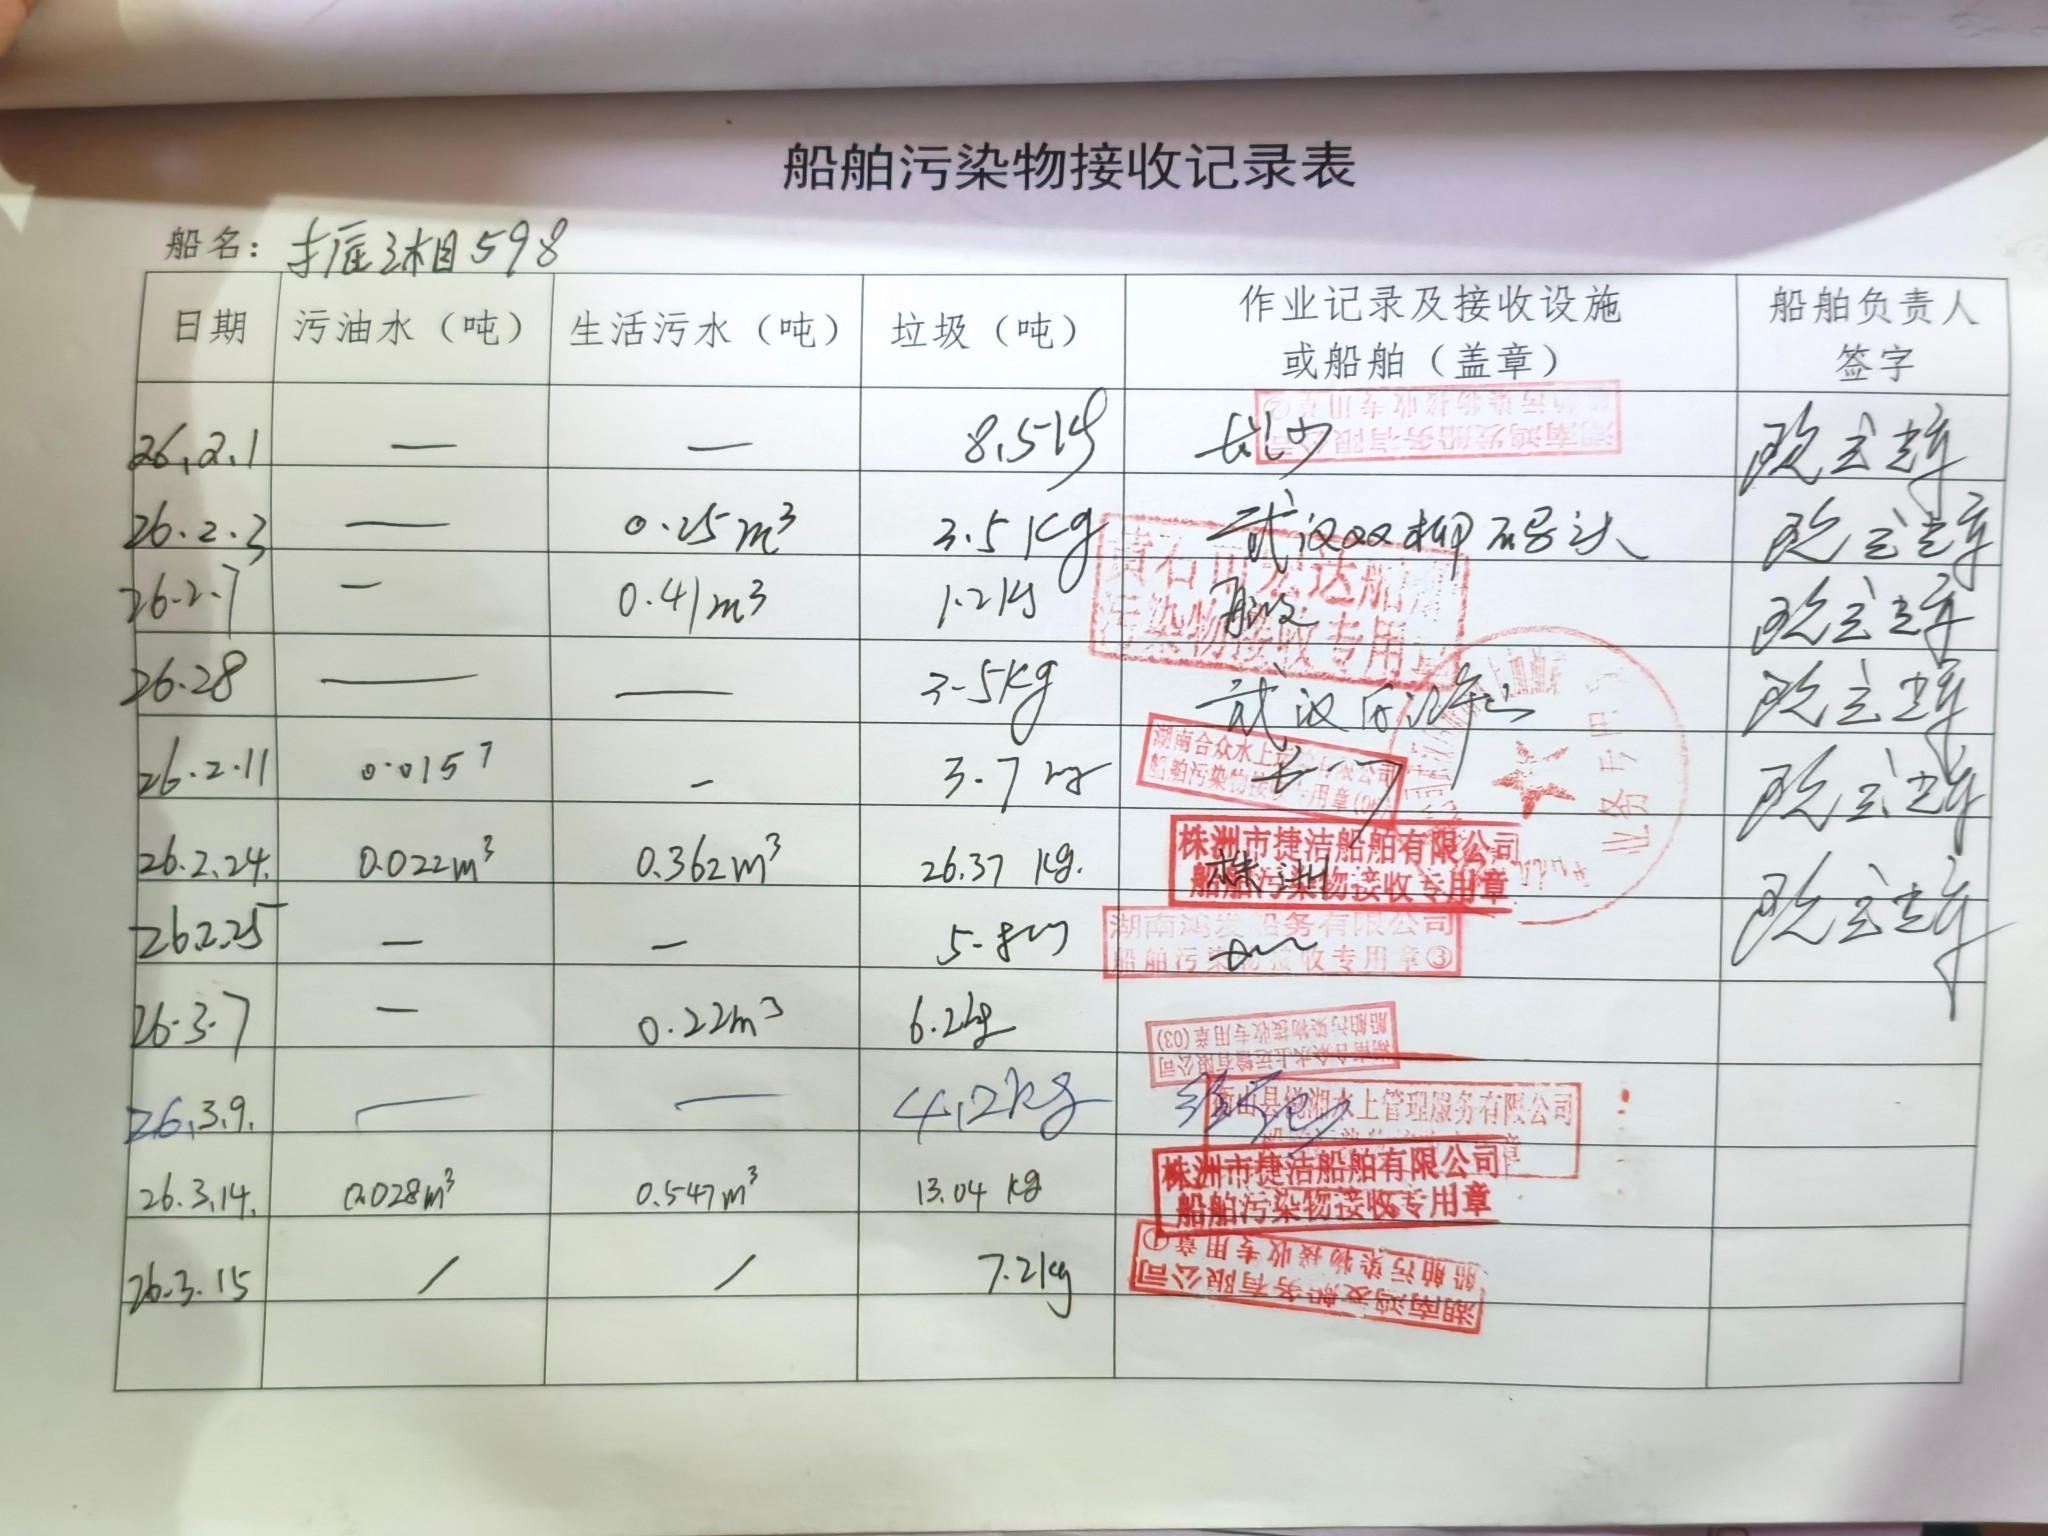 船舶污染物接收记录表
船名: 湘598
日期 污油水（吨） 生活污水（吨） 垃圾（吨） 作业记录及接收设施 船舶负责人
或船舶（盖章） 签字
湖南鸿发船务有限公司
船舶污染物接收专用章②
26.2.1 — — 8.5kg 长沙
26.2.3 — 0.25m³ 3.5Kg 武汉双柳码头
黄石市宏达船舶
污染物接收专用章
26.2.7 — 0.41m³ 1.2kg
26.28 — — 3.5kg 武汉
业务专用章
湖南合众水上运输有限公司
船舶污染物接收专用章
26.2.11 0.015 — 3.7kg
株洲市捷洁船舶有限公司
船舶污染物接收专用章
26.2.24. 0.022m³ 0.362m³ 26.37 kg. 株洲
湖南鸿发船务有限公司
船舶污染物接收专用章③
26.2.25 — — 5.8kg
26.3.7 — 0.22m³ 6.2kg
湖南合众水上运输有限公司
船舶污染物接收专用章(03)
26.3.9. — — 4.2kg
水上管理服务有限公司
26.3.14. 0.028m³ 0.547m³ 13.04 kg
株洲市捷洁船舶有限公司
船舶污染物接收专用章
26.3.15 / / 7.2kg
湖南鸿发船务有限公司
船舶污染物接收专用章①